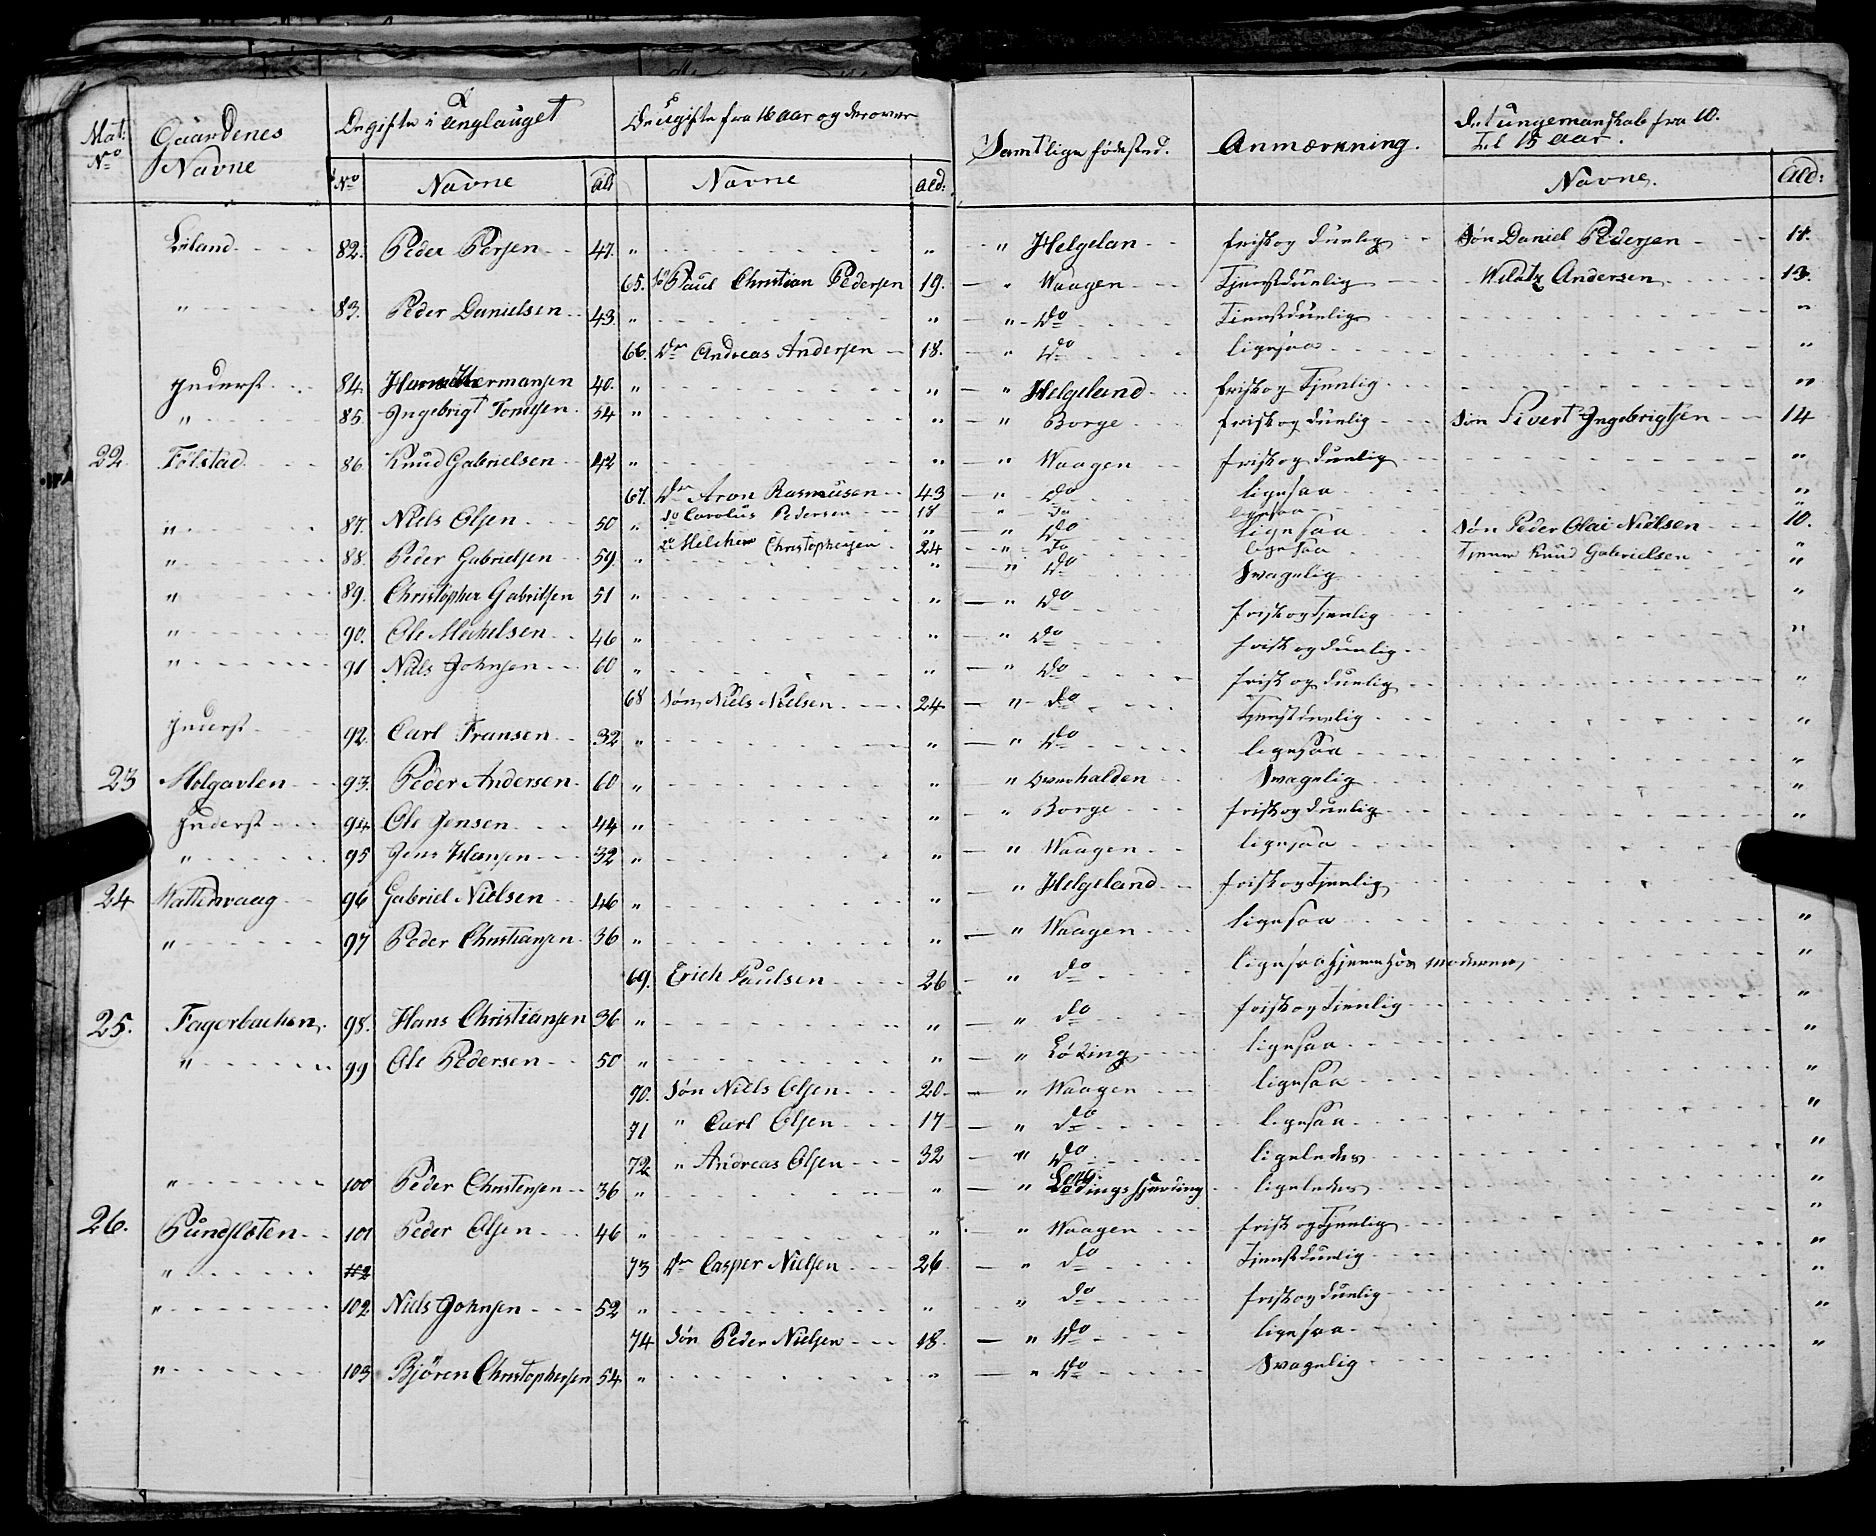 Mat: No | Gaardenes Navne | De gifte i Anglauget | De ugifte fra 16 Aar og derover | Samtlige fødested. | Anmærkning. | Det unge mandskab fra 10. til 15 Aar.
No | Navne | Ald | Navne | Ald: | Navne. | Ald:
82. Peder Persen 47. " " " Helgelan frisk og duelig Søn Daniel Pedersen 11.
65. Paul Christian Pedersen 19. " Waagen Tjenstduelig Andersen 13.
" 83. Peder Danielsen 43. " " " Do Tjenstduelig "
66. Dr Andreas Andersen 18. " Do ligesaa "
Inderst 84. Hermansen 40. " " " Helgeland frisk og Tjenlig "
" 85. Ingebrigt Tomesen 54 " " " Borge frisk og duelig Søn Sivert Ingebrigtsen 14
22 Følstad 86 Knud Gabrielsen 42 " " " Waagen frisk og duelig "
67. Dr Aron Rasmusen 43 " Do ligesaa "
do Carolus Pedersen 18 " Do ligesaa "
" 87. Niels Olsen 50 " " " Do ligesaa Søn Peder Olai Nielsen 10.
Christophersen 24 " Do ligesaa Tjener Knud Gabrielsen "
" 88. Peder Gabrielsen 59. " " " Do Svagelig "
" 89. Christopher Gabrilsen 51 " " " Do frisk og Tjenlig "
" 90. Ole Mickelsen 46 " " " Do frisk og duelig "
" 91 Niels Johnsen 60 " " " Do frisk og duelig "
68 Søn Niels Nielsen 24 " do Tjenstduelig "
Inderst 92. Carl Fransen 32 " " " Do ligesaa "
23 Holgavlen 93. Peder Andersen 60 " " " Overhalden Svagelig "
Inderst 94. Ole Jensen 44 " " " Borge frisk og duelig "
" 95 Jens Hansen 32 " " " Waagen ligesaa
24 Watterwaag 96 Gabriel Nielsen 46 " " " Helgeland frisk og Tjenlig
" 97 Peder Christiansen 36 " " " Waagen ligesaa "
69. Erich Paulsen 26 " do ligesaa hjeme hos moderen "
25. Fagerbachen 98. Hans Christiansen 36 " " " do frisk og Tjenlig "
" 99 Ole Pedersen 50 " " " Løding ligesaa "
70. Søn Niels Olsen 20 " Waagen ligesaa "
71 " Carl Olsen 17 " do ligesaa "
72 " Andreas Olsen 32 " Do ligeledes "
" 100 Peder Christensen 36 " " " Lødings fjerding ligeledes "
26. Pundsleten 101 Peder Olsen 46 " " " Waagen frisk og Tjenlig "
" 73 Dr Casper Nielsen 26 " do Tjenstduelig "
" 102 Niels Johnsen 52 " " " Do frisk og duelig "
74 Søn Peder Nielsen 18. " Do ligesaa "
" 103 Björen Christophersen 54 " " " Do Svagelig "